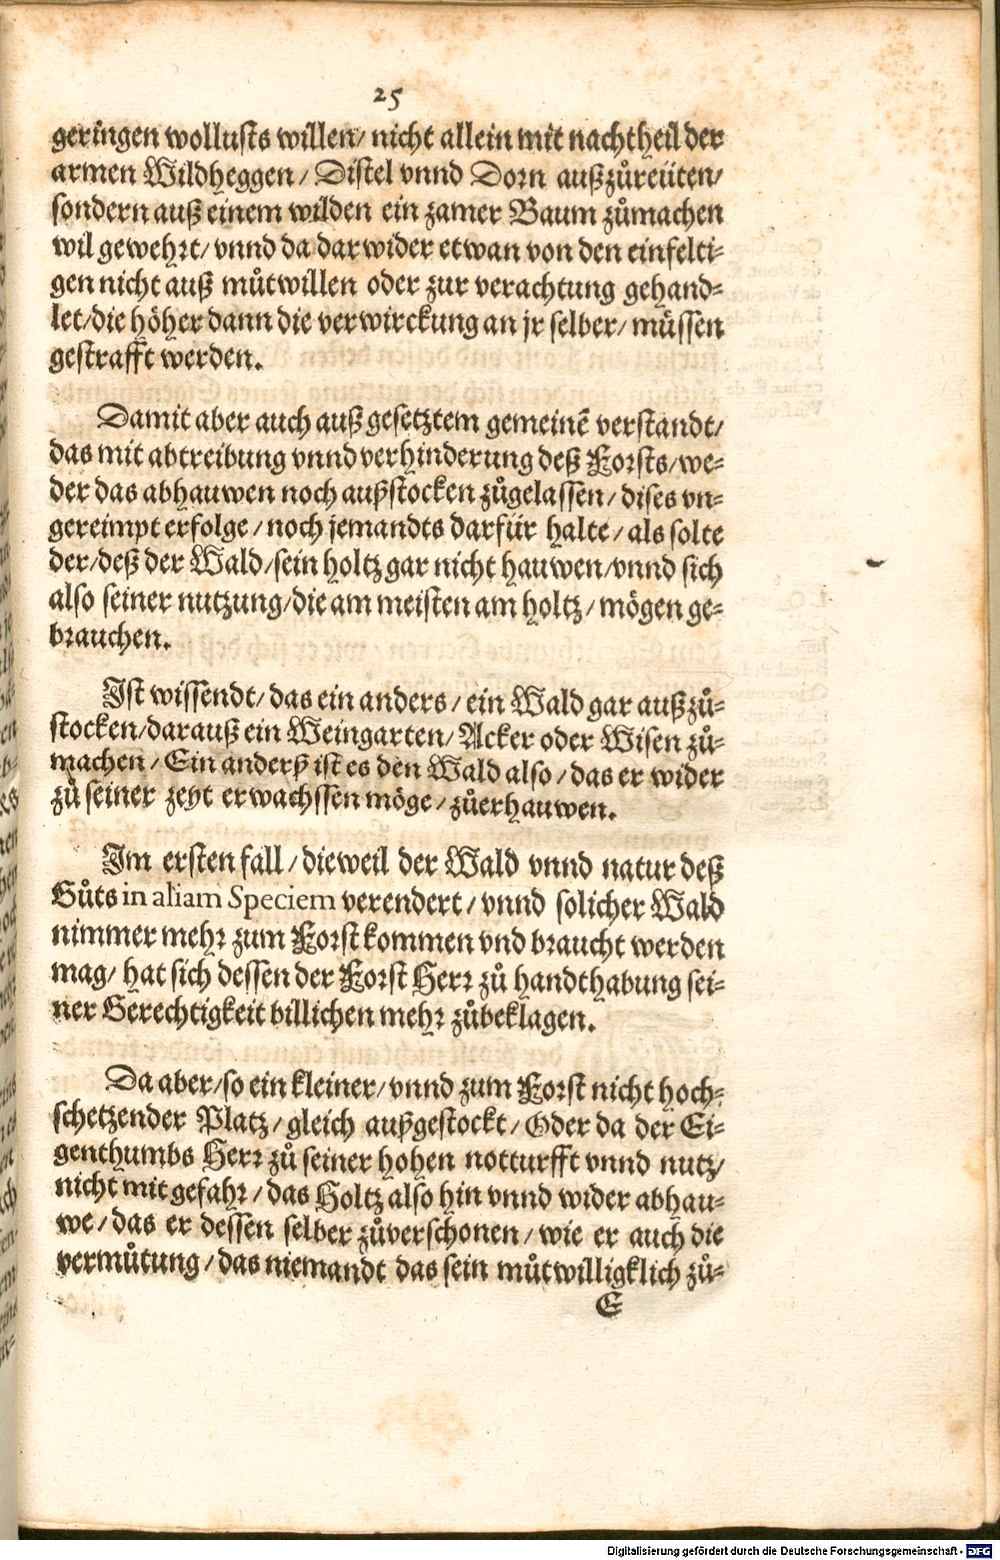 25
geringen wollusts willen/ nicht allein mit nachtheil der
armen Wildheggen/ Distel vnnd Dorn außzůreüten/
sondern auß einem wilden ein zamer Baum zůmachen
wil gewehrt/ vnnd da darwider etwan von den einfelti-
gen nicht auß můtwillen oder zur verachtung gehand-
let/ die höher dann die verwirckung an jr selber/ müssen
gestrafft werden.
Damit aber auch auß gesetztem gemeinẽ verstandt/
das mit abtreibung vnnd verhinderung deß Forsts/ we-
der das abhauwen noch außstocken zůgelassen/ dises vn-
gereimpt erfolge/ noch jemandts darfür halte/ als solte
der/ deß der Wald/ sein holtz gar nicht hauwen/ vnnd sich
also seiner nutzung/ die am meisten am holtz/ mögen ge-
brauchen.
Ist wissendt/ das ein anders/ ein Wald gar außzů-
stocken/ darauß ein Weingarten/ Acker oder Wisen zů-
machen/ Ein anderß ist es den Wald also/ das er wider
zů seiner zeyt erwachssen möge/ zůerhauwen.
Im ersten fall/ dieweil der Wald vnnd natur deß
Gůts in aliam Speciem verendert/ vnnd solicher Wald
nimmer mehr zum Forst kommen vnd braucht werden
mag/ hat sich dessen der Forst Herr zů handthabung sei-
ner Gerechtigkeit billichen mehr zůbeklagen.
Da aber/ so ein kleiner/ vnnd zum Forst nicht hoch-
schetzender Platz/ gleich außgestockt/ Oder da der Ei-
genthumbs Herr zů seiner hohen notturfft vnnd nutz/
nicht mit gefahr/ das Holtz also hin vnnd wider abhau-
we/ das er dessen selber zůverschonen/ wie er auch die
vermůtung/ das niemandt das sein můtwilligklich zů-
E
Digitalisierung gefördert durch die Deutsche Forschungsgemeinschaft - DFG